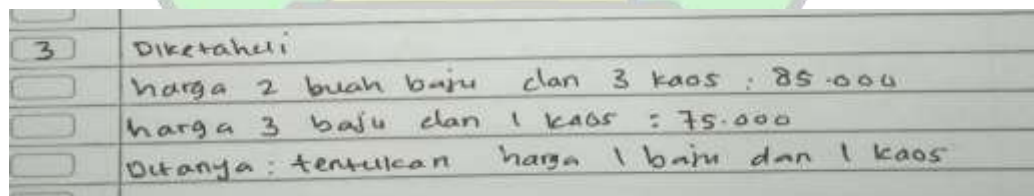 3 Diketahui
harga 2 buah baju dan 3 kaos : 85.000
harga 3 baju dan 1 kaos : 75.000
Ditanya : tentukan harga 1 baju dan 1 kaos